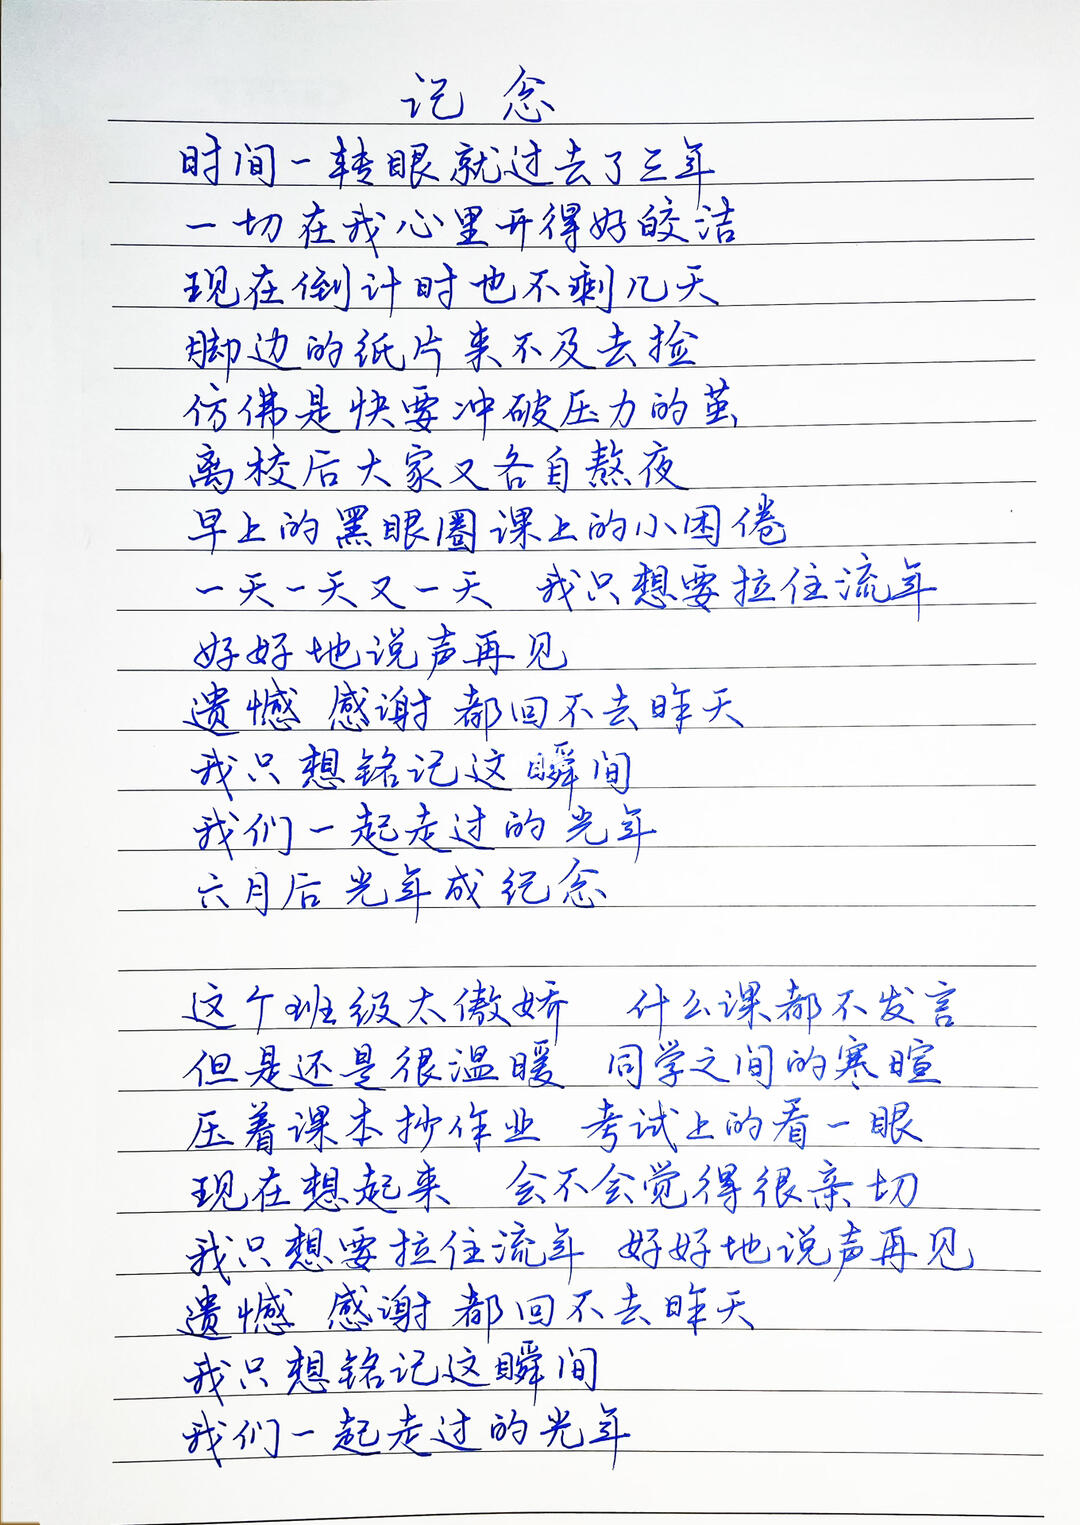 记念
时间一转眼就过去了三年
一切在我心里开得好皎洁
现在倒计时也不剩几天
脚边的纸片来不及去捡
仿佛是快要冲破压力的茧
离校后大家又各自熬夜
早上的黑眼圈课上的小困倦
一天一天又一天 我只想要拉住流年
好好地说声再见
遗憾 感谢 都回不去昨天
我只想铭记这瞬间
我们一起走过的光年
六月后光年成纪念
这个班级太傲娇 什么课都不发言
但是还是很温暖 同学之间的寒暄
压着课本抄作业 考试上的看一眼
现在想起来 会不会觉得很亲切
我只想要拉住流年 好好地说声再见
遗憾 感谢 都回不去昨天
我只想铭记这瞬间
我们一起走过的光年